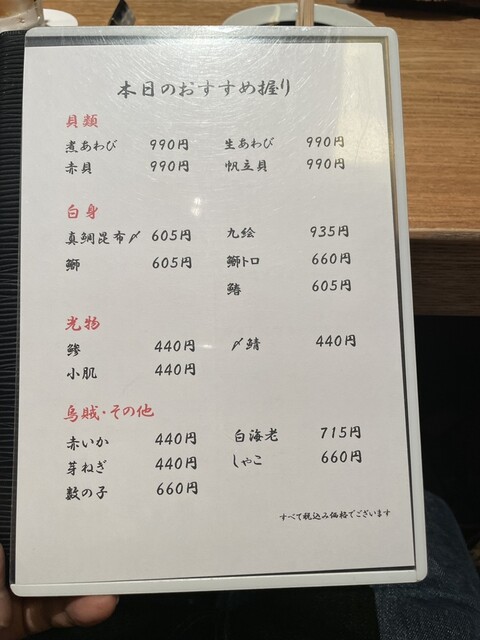 本日のおすすめ握り
貝類
煮あわび 990円 生あわび 990円
赤貝 990円 帆立貝 990円
白身
真鯛昆布〆 605円 九絵 935円
鰤 605円 鰤トロ 660円
鰆 605円
光物
鯵 440円 〆鯖 440円
小肌 440円
烏賊・その他
赤いか 440円 白海老 715円
芽ねぎ 440円 しゃこ 660円
数の子 660円
すべて税込み価格でございます